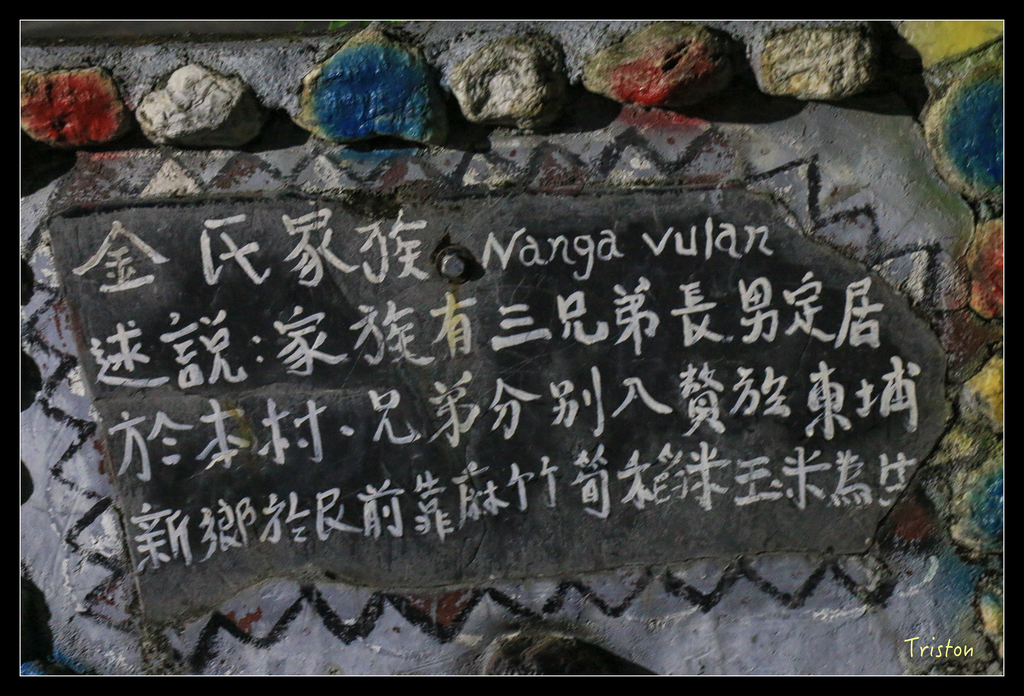 金氏家族 Nanga vulan
述說:家族有三兄弟長男定居
於本村、兄弟分別入贅於東埔
新鄉於民前靠麻竹筍稻米玉米為生
Triston